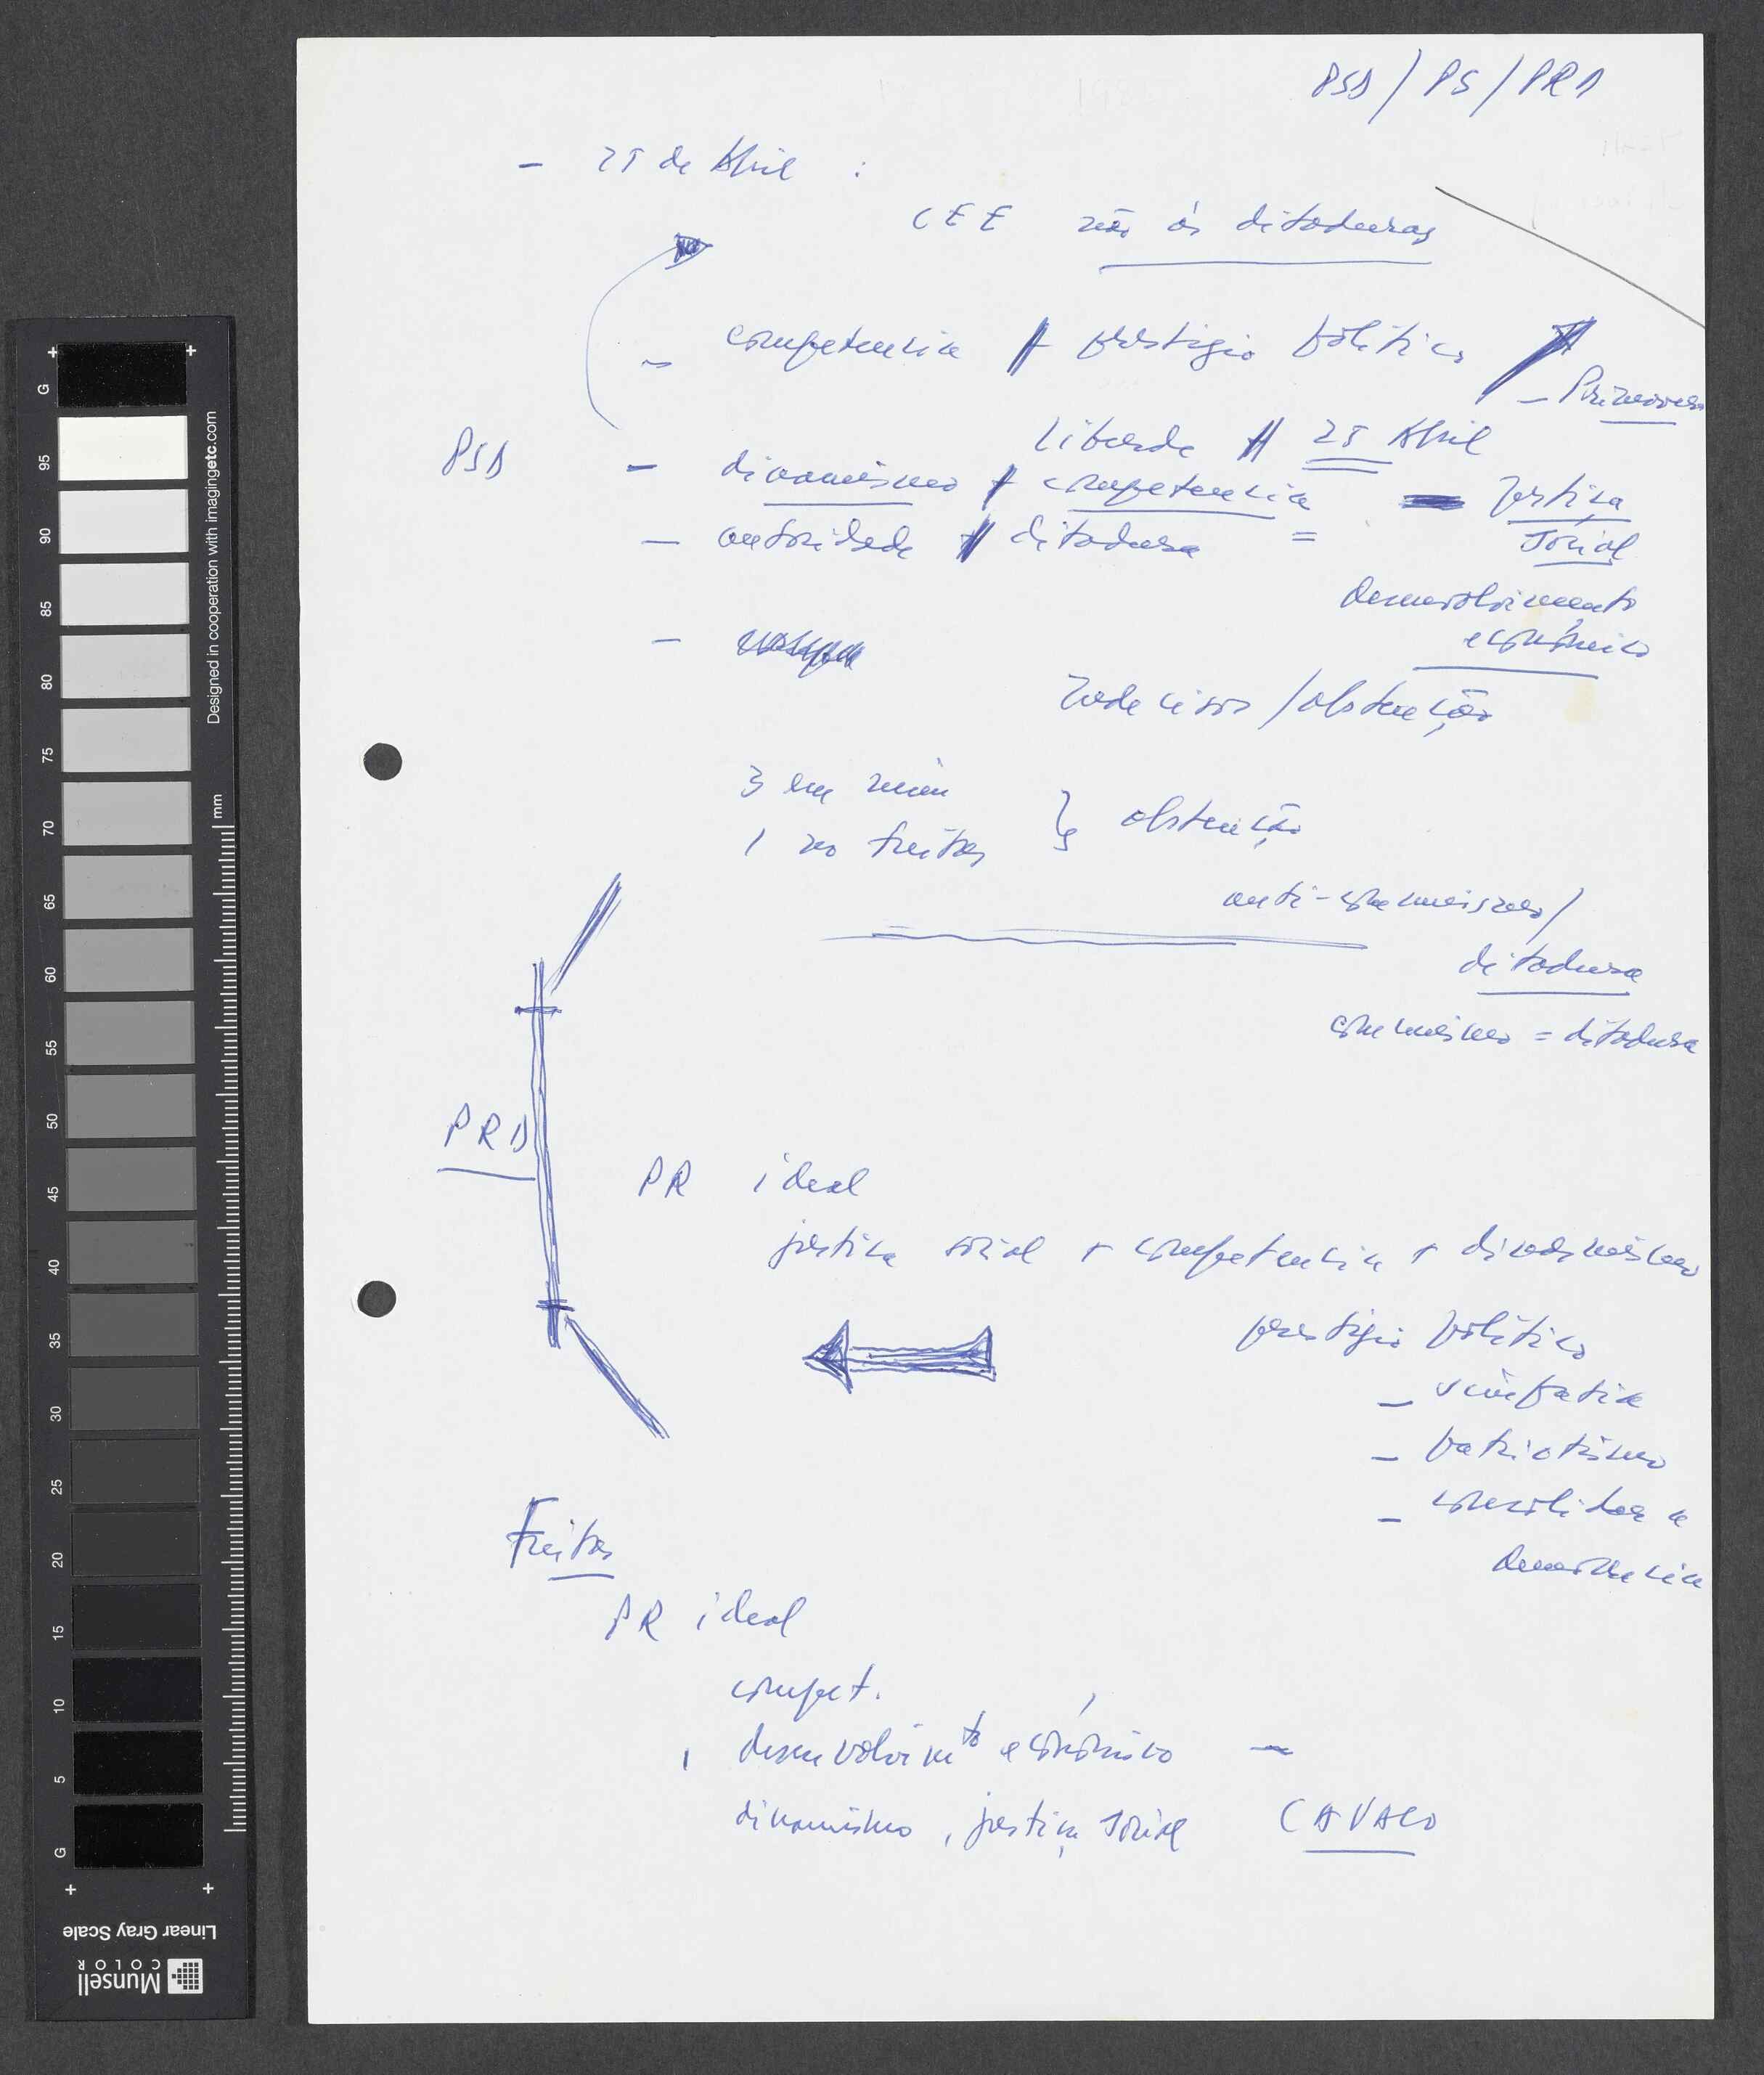 PSD / PS / PRD
- 25 de Abril :
CEE não às ditaduras
- competencia + prestigio politico
- Primavera
Liberde # 25 Abril
PSD - dinamismo + competencia = Justiça
- autoridade # ditadura = Social
desenvolvimento
económico
-
Indecisos / abstenção
3 em mim
1 no Freitas } abstenção
anti-comunismo /
ditadura
comunismo = ditadura
PRD
PR ideal
justiça social + competencia + dinamismo
prestigio politico
- simpatia
- patriotismo
- consolidar a
democracia
Freitas
PR ideal
compet.
, desenvolvimto económico -
dinamismo, justiça social CAVACO
+ +
G 95 90 85 80 75 70 65 60 55 50 45 40 35 30 25 20 15 10 5 G
Designed in cooperation with imagingetc.com
mm
+ +
Linear Gray Scale
Munsell
COLOR